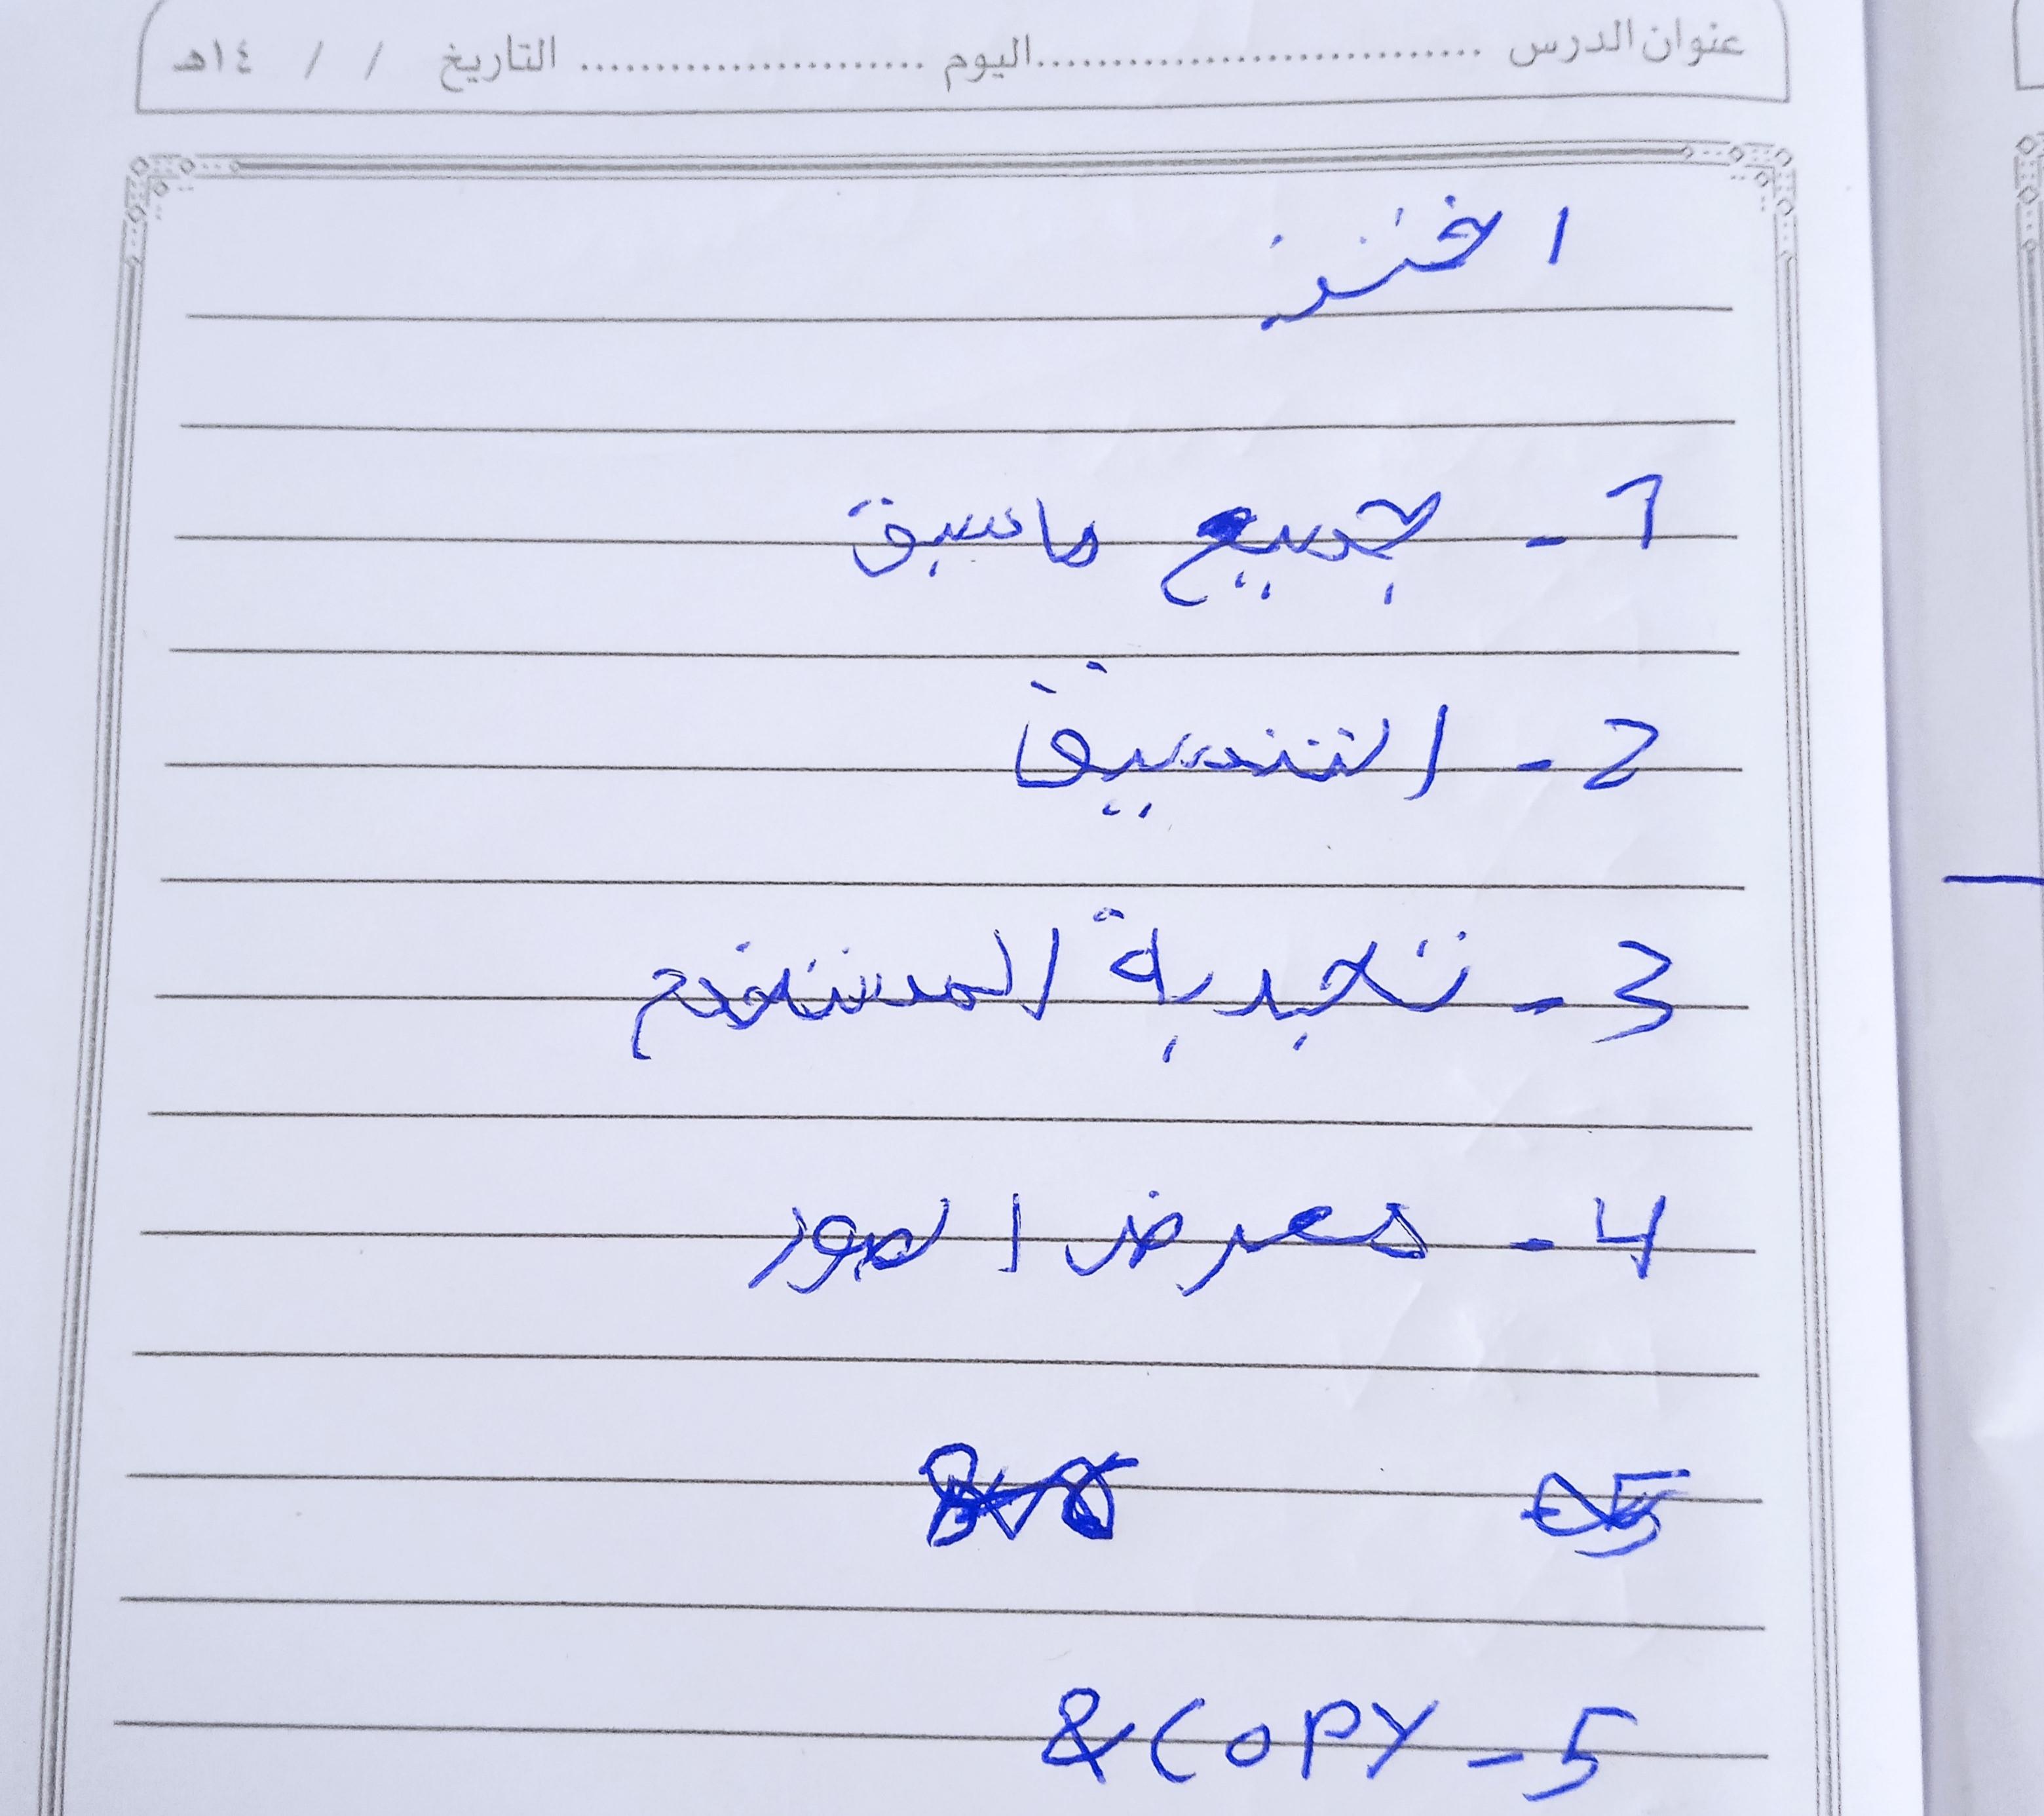 عنوان الدرس ..............................اليوم ........................ التاريخ / / ١٤هـ
اختر
1- جميع ماسبق
2- التنسيق
3- تجربة المستخدم
4- معرض الصور
5- &COPY